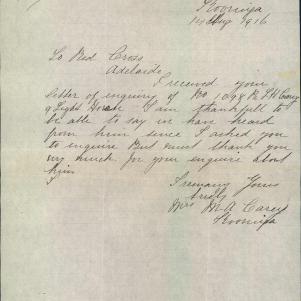 Koomiya
14 Aug 1916
To Red Cross
Adelaide
I received your
letter of enquiry of No 1098 Carey
9 Light Horse I am thankfull to
be able to say we have heard
from him since I asked you
to enquire But must thank you
very much for your enquire about
him
I remany Yours
truly
Mrs M A Carey
Koomiya